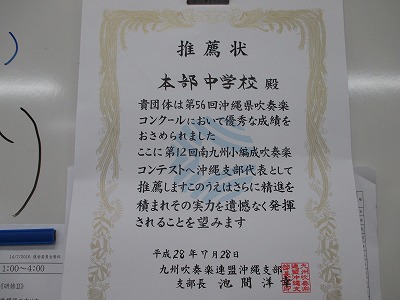 推薦状
本部中学校 殿
貴団体は第56回沖縄県吹奏楽
コンクールにおいて優秀な成績を
おさめられました
ここに第12回南九州小編成吹奏楽
コンテストへ沖縄支部代表として
推薦しますこのうえはさらに精進を
積まれその実力を遺憾なく発揮
されることを望みます
平成28年7月28日
九州吹奏楽連盟沖縄支部
支部長 池間洋幸
1:00～4:00